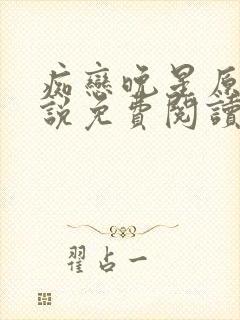 痴戀晚星原
說免費閱讀
翟占一